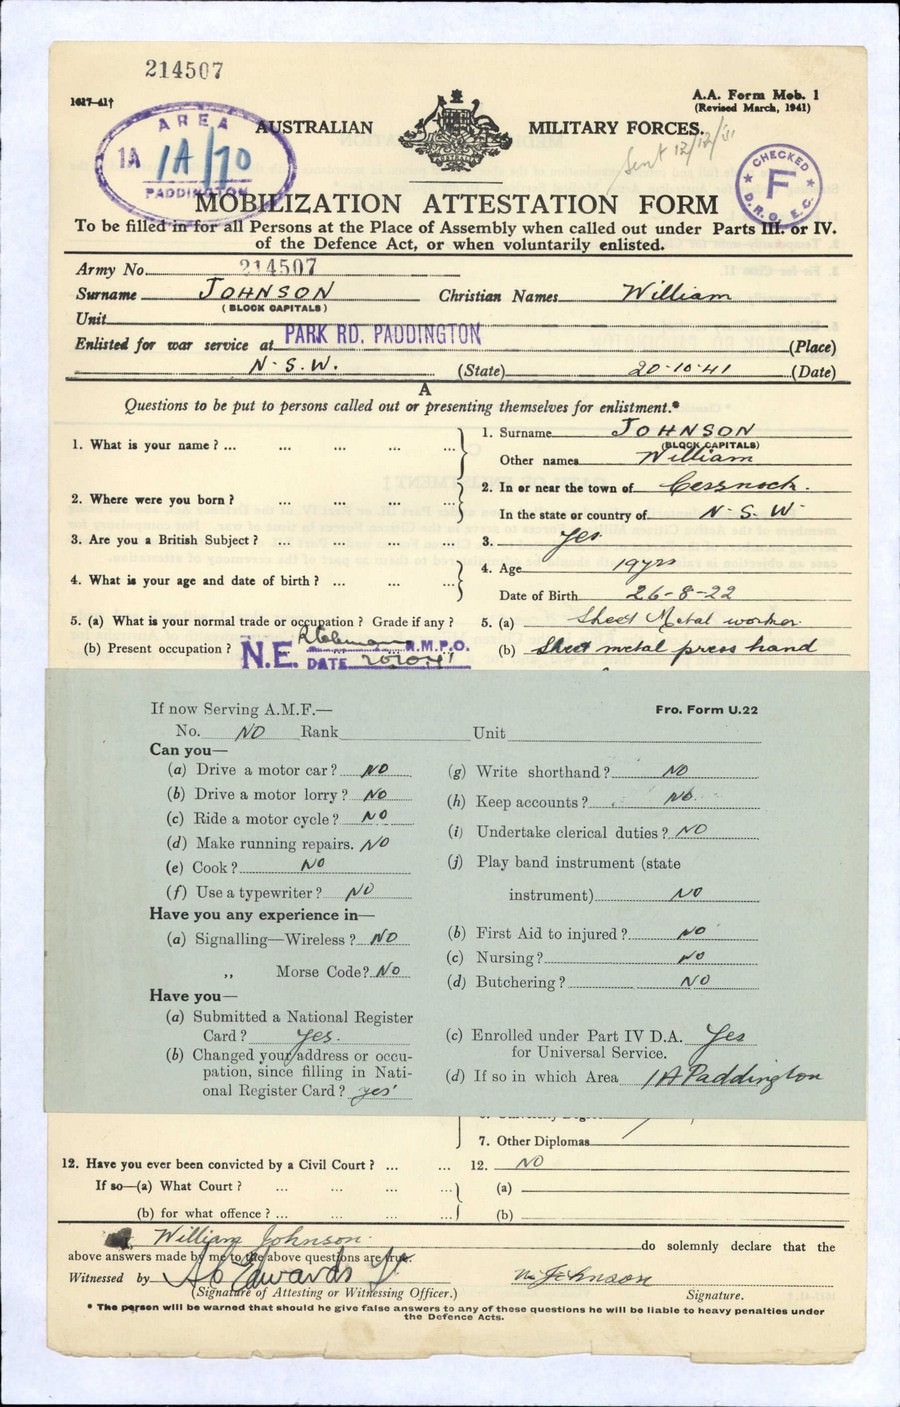 214507
1617—41†
A.A. Form Mob. 1
(Revised March, 1941)
AREA
1A 1A/70
PADDINGTON
AUSTRALIAN MILITARY FORCES.
Sent 12/12/
CHECKED
F
D.R.O. E.C.
MOBILIZATION ATTESTATION FORM
To be filled in for all Persons at the Place of Assembly when called out under Parts III. or IV.
of the Defence Act, or when voluntarily enlisted.
Army No. 214507
Surname JOHNSON Christian Names William
(BLOCK CAPITALS)
Unit
Enlisted for war service at PARK RD. PADDINGTON (Place)
N.S.W. (State) 20.10.41 (Date)
A
Questions to be put to persons called out or presenting themselves for enlistment.*
1. What is your name? ... ... ... ... 1. Surname JOHNSON
(BLOCK CAPITALS)
Other names William
2. Where were you born? ... ... ... 2. In or near the town of Cessnock.
In the state or country of N.S.W.
3. Are you a British Subject? ... ... ... 3. Yes
4. What is your age and date of birth? ... ... 4. Age 19yrs
Date of Birth 26-8-22
5. (a) What is your normal trade or occupation? Grade if any? 5. (a) Sheet Metal worker.
(b) Present occupation? (b) Sheet metal press hand
N.E. R.M.P.O.
DATE 20.10.41
If now Serving A.M.F.— Fro. Form U.22
No. NO Rank Unit
Can you—
(a) Drive a motor car? NO (g) Write shorthand? NO
(b) Drive a motor lorry? NO (h) Keep accounts? No.
(c) Ride a motor cycle? NO (i) Undertake clerical duties? NO
(d) Make running repairs. NO (j) Play band instrument (state
(e) Cook? NO
(f) Use a typewriter? NO instrument) NO
Have you any experience in—
(a) Signalling—Wireless? NO (b) First Aid to injured? NO
(c) Nursing? NO
,, Morse Code? NO (d) Butchering? NO
Have you—
(a) Submitted a National Register
Card? Yes. (c) Enrolled under Part IV D.A. Yes
for Universal Service.
(b) Changed your address or occu-
pation, since filling in Nati- (d) If so in which Area 1A Paddington
onal Register Card? yes
7. Other Diplomas
12. Have you ever been convicted by a Civil Court? ... ... 12. NO
If so—(a) What Court? ... ... ... ... (a)
(b) for what offence? ... ... ... ... (b)
William Johnson. do solemnly declare that the
above answers made by me to the above questions are true.
Witnessed by Edwards Lt Wm Johnson
(Signature of Attesting or Witnessing Officer.) Signature.
* The person will be warned that should he give false answers to any of these questions he will be liable to heavy penalties under
the Defence Acts.